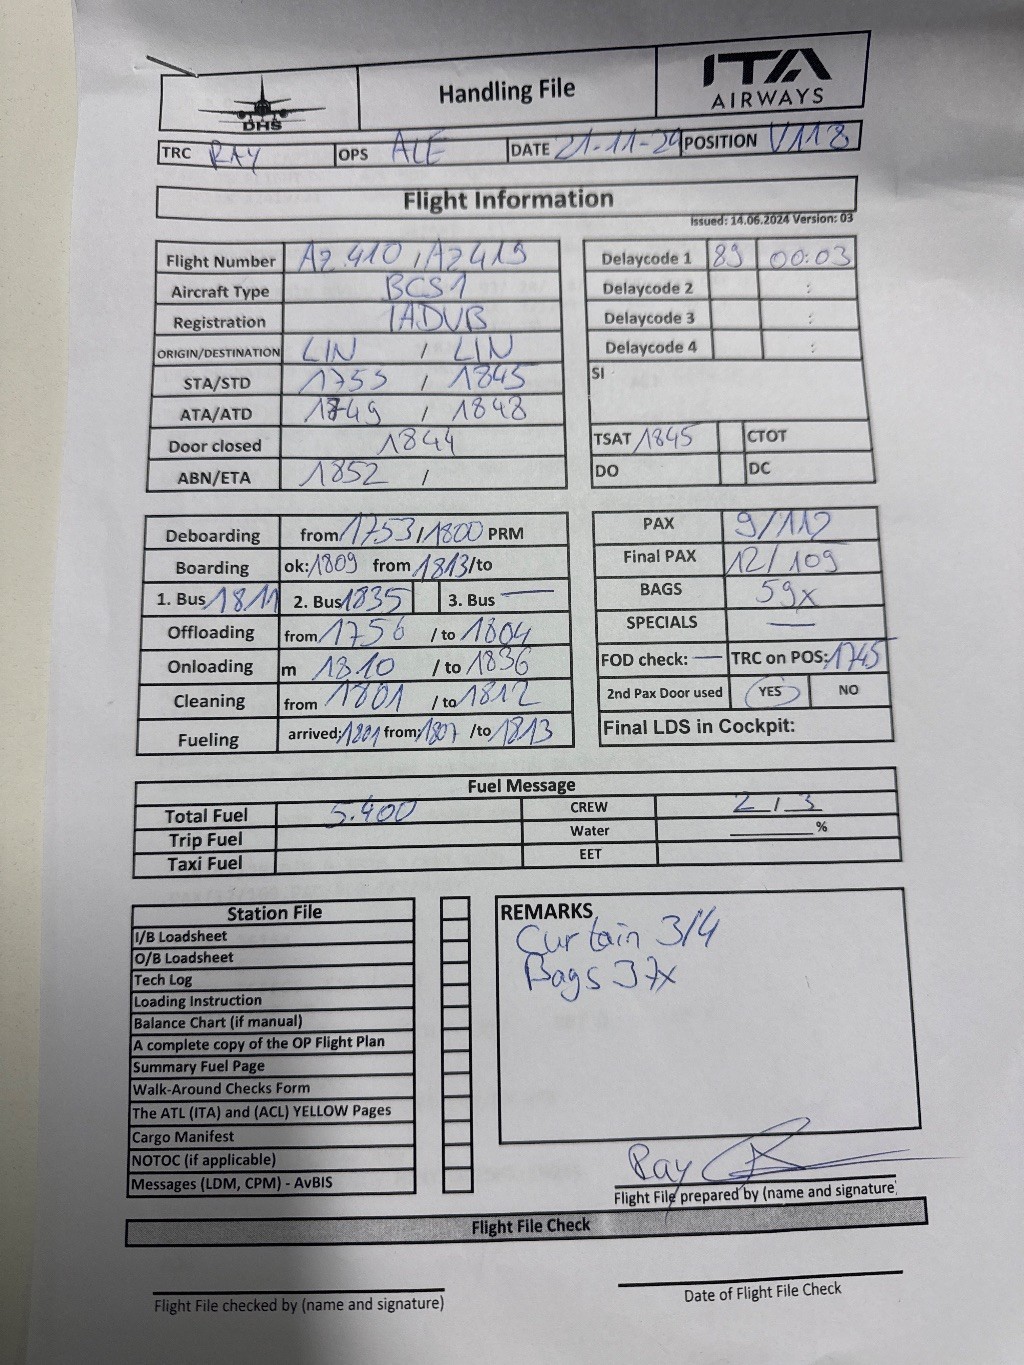 DHS
Handling File
ITA
AIRWAYS
TRC RAY OPS ALE DATE 21-11-24 POSITION V118
Flight Information
Issued: 14.06.2024 Version: 03
Flight Number AZ 410 / AZ419
Aircraft Type BCS1
Registration IADVB
ORIGIN/DESTINATION LIN / LIN
STA/STD 1755 / 1845
ATA/ATD 1749 / 1848
Door closed 1844
ABN/ETA 1852 /
Delaycode 1 89 00:03
Delaycode 2 :
Delaycode 3 :
Delaycode 4 :
SI
TSAT 1845 CTOT
DO DC
Deboarding from 1753 / 1800 PRM
Boarding ok: 1809 from 1813/to
1. Bus 1811 2. Bus 1835 3. Bus —
Offloading from 1756 / to 1804
Onloading m 1810 / to 1836
Cleaning from 1801 / to 1812
Fueling arrived; 1801 from; 1807 /to 1813
PAX 9/112
Final PAX 12/109
BAGS 59x
SPECIALS —
FOD check: — TRC on POS: 1745
2nd Pax Door used YES NO
Final LDS in Cockpit:
Fuel Message
Total Fuel 5.400 CREW 2 / 3
Trip Fuel Water ______%
Taxi Fuel EET
Station File
I/B Loadsheet
O/B Loadsheet
Tech Log
Loading Instruction
Balance Chart (if manual)
A complete copy of the OP Flight Plan
Summary Fuel Page
Walk-Around Checks Form
The ATL (ITA) and (ACL) YELLOW Pages
Cargo Manifest
NOTOC (if applicable)
Messages (LDM, CPM) - AvBIS
REMARKS
Curtain 3/4
Bags 37x
Ray
Flight File prepared by (name and signature
Flight File Check
Flight File checked by (name and signature)
Date of Flight File Check